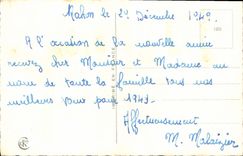 le 29 Décembre 194
A l'occasion de la nouvelle année
recevez cher Monsieur et Madame au
nom de toute la famille tous nos
meilleurs vœux pour 1949
Affectueusement
M.